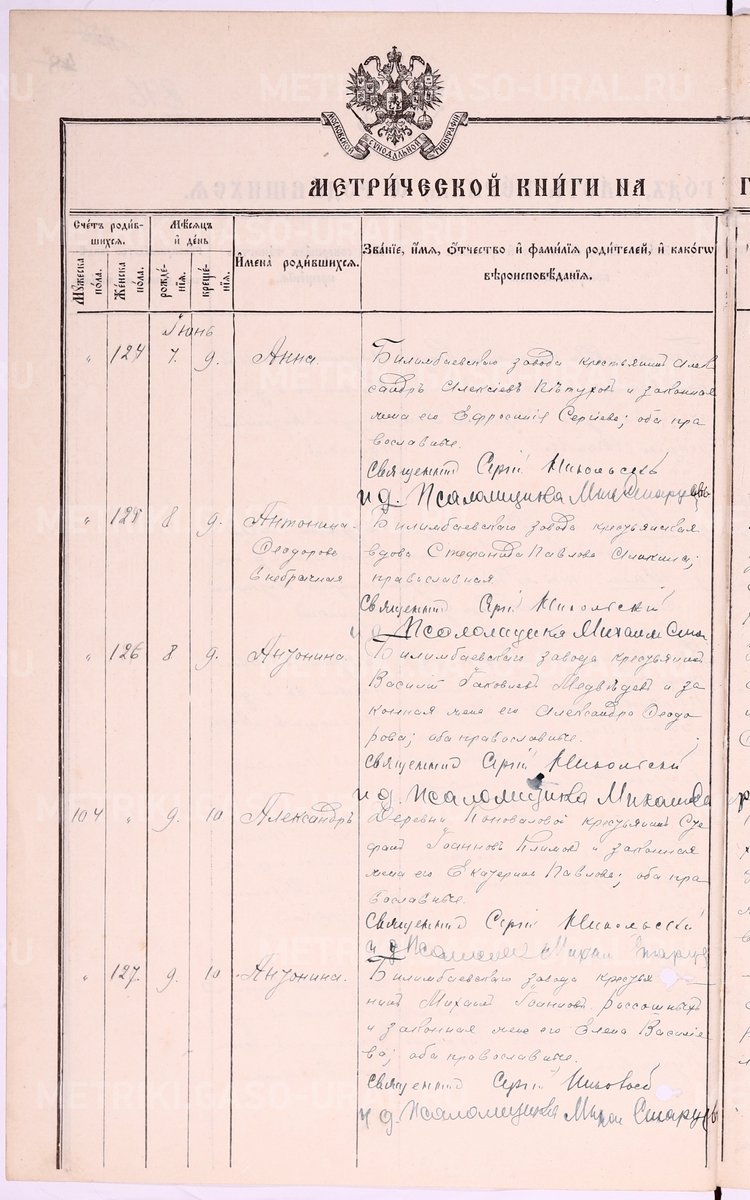 МОСКОВСКОЙ СѴНОДАЛЬНОЙ ТИПОГРАФІИ
МЕТРИ́ЧЕСКОЙ КНИ́ГИ НА
Сче́тъ роди́в-
шихсѧ.
Мѣ́сѧцъ
и҆ де́нь
И҆мена̀ роди́вшихсѧ.
Зва́нїе, и҆́мѧ, ѻ҆́тчество и҆ фами́лїѧ роди́телей, и҆ како́гѡ
вѣроисповѣ́данїѧ.
Мꙋ́жеска
по́ла.
Же́нска
по́ла.
рожде́-
нїѧ.
креще́-
нїѧ.
Іюнь
" 124 7. 9. Анна.
Билимбаевскаго завода крестьянинъ Алек
сандръ Алексіевъ Пѣтуховъ и законная
жена его Ефросинія Сергіева; оба пра
вославные.
Священникъ Сергій Никольскій
и д. Псаломщика Мих Старцевъ
" 125 8 9. Антонина
Феодорова
внебрачная
Билимбаевскаго завода крестьянская
вдова Стефанида Павлова;
православная
Священникъ Сергій Никольскій
и д. Псаломщика Михаилъ Стар
" 126 8 9. Антонина.
Билимбаевскаго завода крестьянинъ
Василій Іаковлевъ Медвѣдевъ и за
конная жена его Александра Феодо
рова; оба православные.
Священникъ Сергій Никольскій
и д. Псаломщика Михаилъ
104 " 9. 10 Александръ
Деревни Коноваловой крестьянинъ Сте
фанъ Іоанновъ и законная
жена его Екатерина Павлова; оба пра
вославные.
Священникъ Сергій Никольскій
и д Псаломщ Михаи Старцев
" 127. 9. 10 Антонина.
Билимбаевскаго завода крестья
нинъ Михаилъ Іоанновъ Рассошныхъ
и законная жена его Елена Василіе
ва; оба православные.
Священникъ Сергій Никольскій
и д. Псаломщика Михаи Старцевъ
METRIKI.GASO-URAL.RU